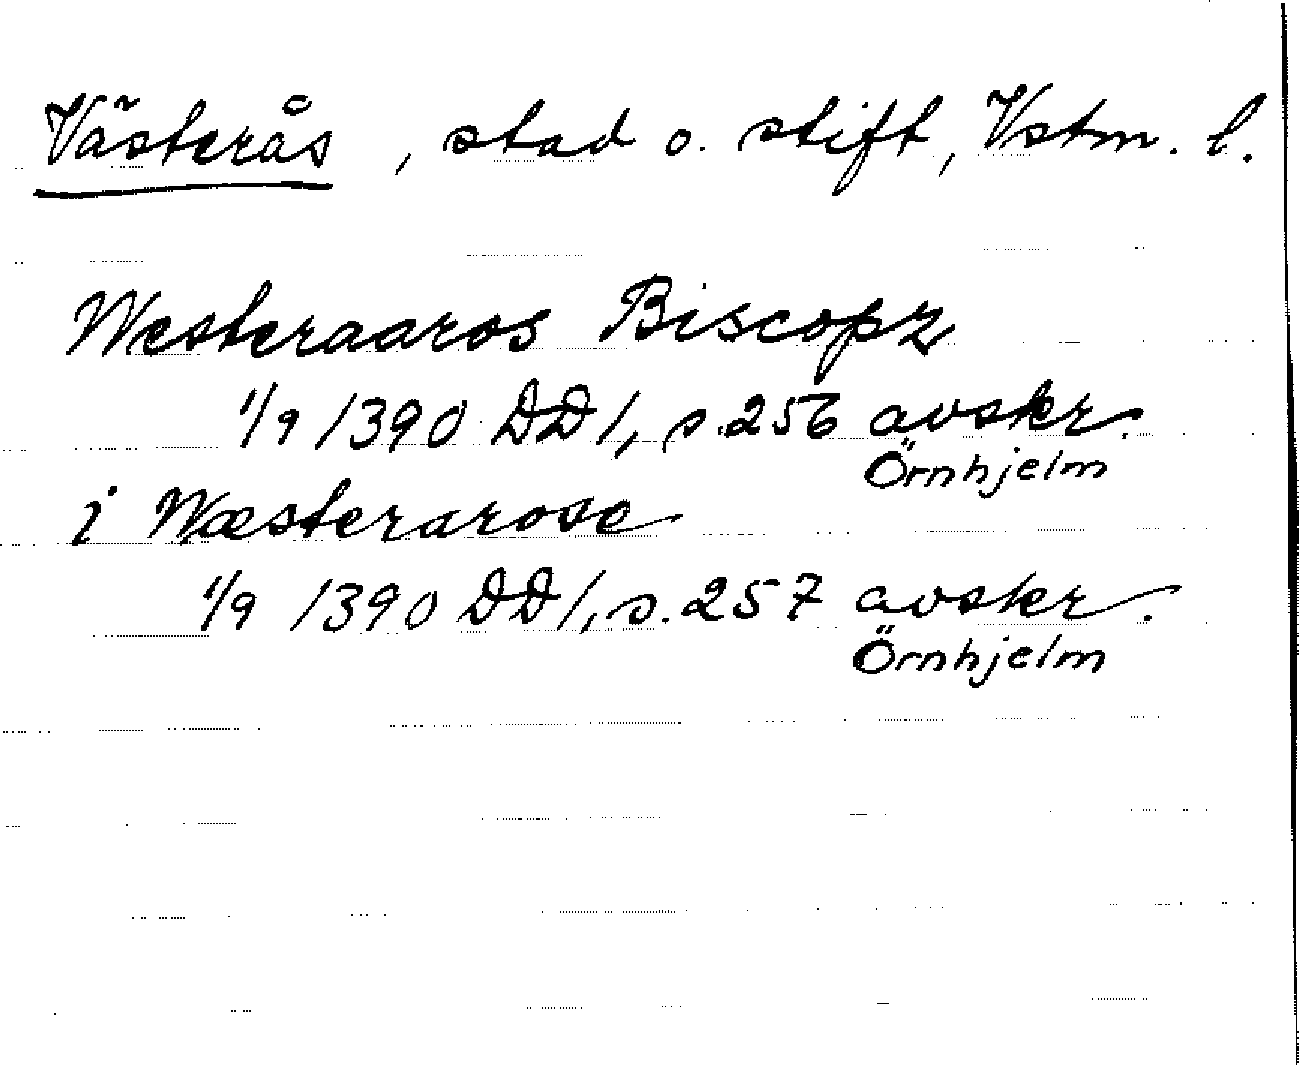 Västerås, stad o. stift, Vstm. l.
Westeraaros Biscopz
1/9 1390 DD 1, s. 256 avskr.
Örnhjelm
i Wæsterarose
1/9 1390 DD 1, s. 257 avskr.
Örnhjelm